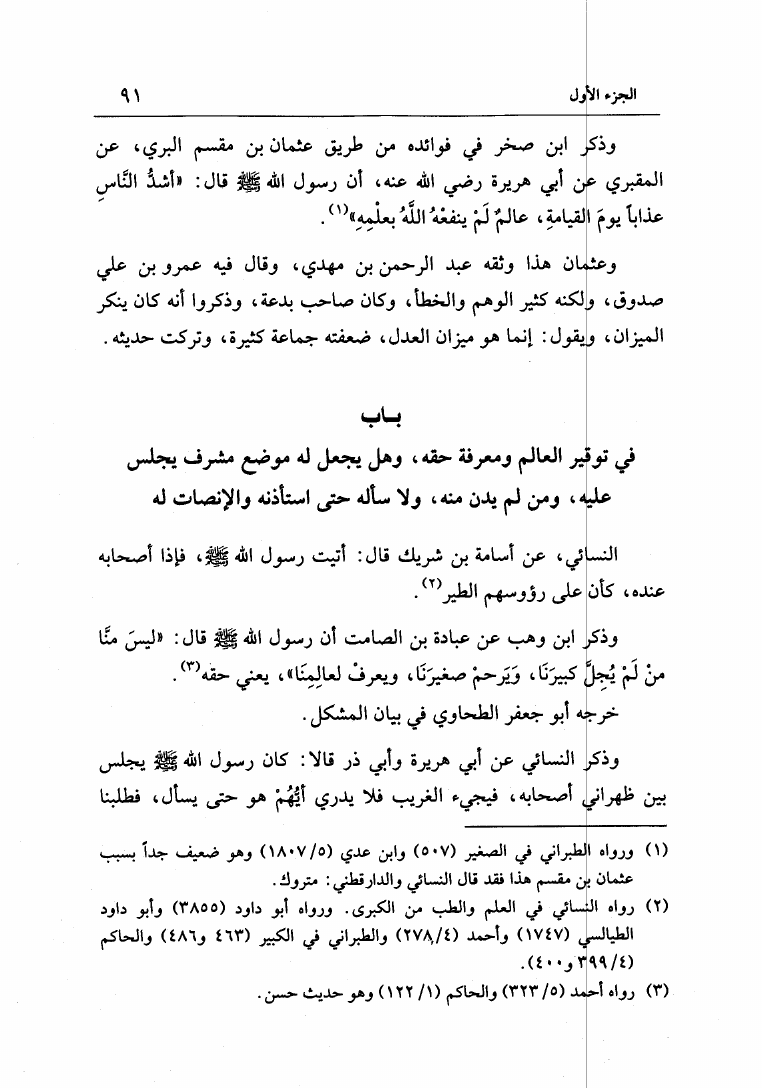 الجزء الأول ٩١
وذكر ابن صخر في فوائده من طريق عثمان بن مقسم البري، عن
المقبري عن أبي هريرة رضي الله عنه، أن رسول الله ﷺ قال: «أشدُّ النَّاسِ
عذاباً يومَ القيامةِ، عالمٌ لَمْ ينفعْهُ اللَّهُ بعلْمِهِ»(١).
وعثمان هذا وثقه عبد الرحمن بن مهدي، وقال فيه عمرو بن علي
صدوق، ولكنه كثير الوهم والخطأ، وكان صاحب بدعة، وذكروا أنه كان ينكر
الميزان، ويقول: إنما هو ميزان العدل، ضعفته جماعة كثيرة، وتركت حديثه.
بـاب
في توقير العالم ومعرفة حقه، وهل يجعل له موضع مشرف يجلس
عليه، ومن لم يدن منه، ولا سأله حتى استأذنه والإنصات له
النسائي، عن أسامة بن شريك قال: أتيت رسول الله ﷺ، فإذا أصحابه
عنده، كأن على رؤوسهم الطير(٢).
وذكر ابن وهب عن عبادة بن الصامت أن رسول الله ﷺ قال: «ليسَ منَّا
منْ لَمْ يُجِلَّ كبيرَنَا، وَيَرحمْ صغيرَنَا، ويعرفْ لعالِمِنَا»، يعني حقه(٣).
خرجه أبو جعفر الطحاوي في بيان المشكل.
وذكر النسائي عن أبي هريرة وأبي ذر قالا: كان رسول الله ﷺ يجلس
بين ظهراني أصحابه، فيجيء الغريب فلا يدري أيُّهُمْ هو حتى يسأل، فطلبنا
(١) ورواه الطبراني في الصغير (٥٠٧) وابن عدي (١٨٠٧/٥) وهو ضعيف جداً بسبب
عثمان بن مقسم هذا فقد قال النسائي والدارقطني: متروك.
(٢) رواه النسائي في العلم والطب من الكبرى. ورواه أبو داود (٣٨٥٥) وأبو داود
الطيالسي (١٧٤٧) وأحمد (٢٧٨/٤) والطبراني في الكبير (٤٦٣ و٤٨٦) والحاكم
(٣٩٩/٤ و٤٠٠).
(٣) رواه أحمد (٣٢٣/٥) والحاكم (١٢٢/١) وهو حديث حسن.